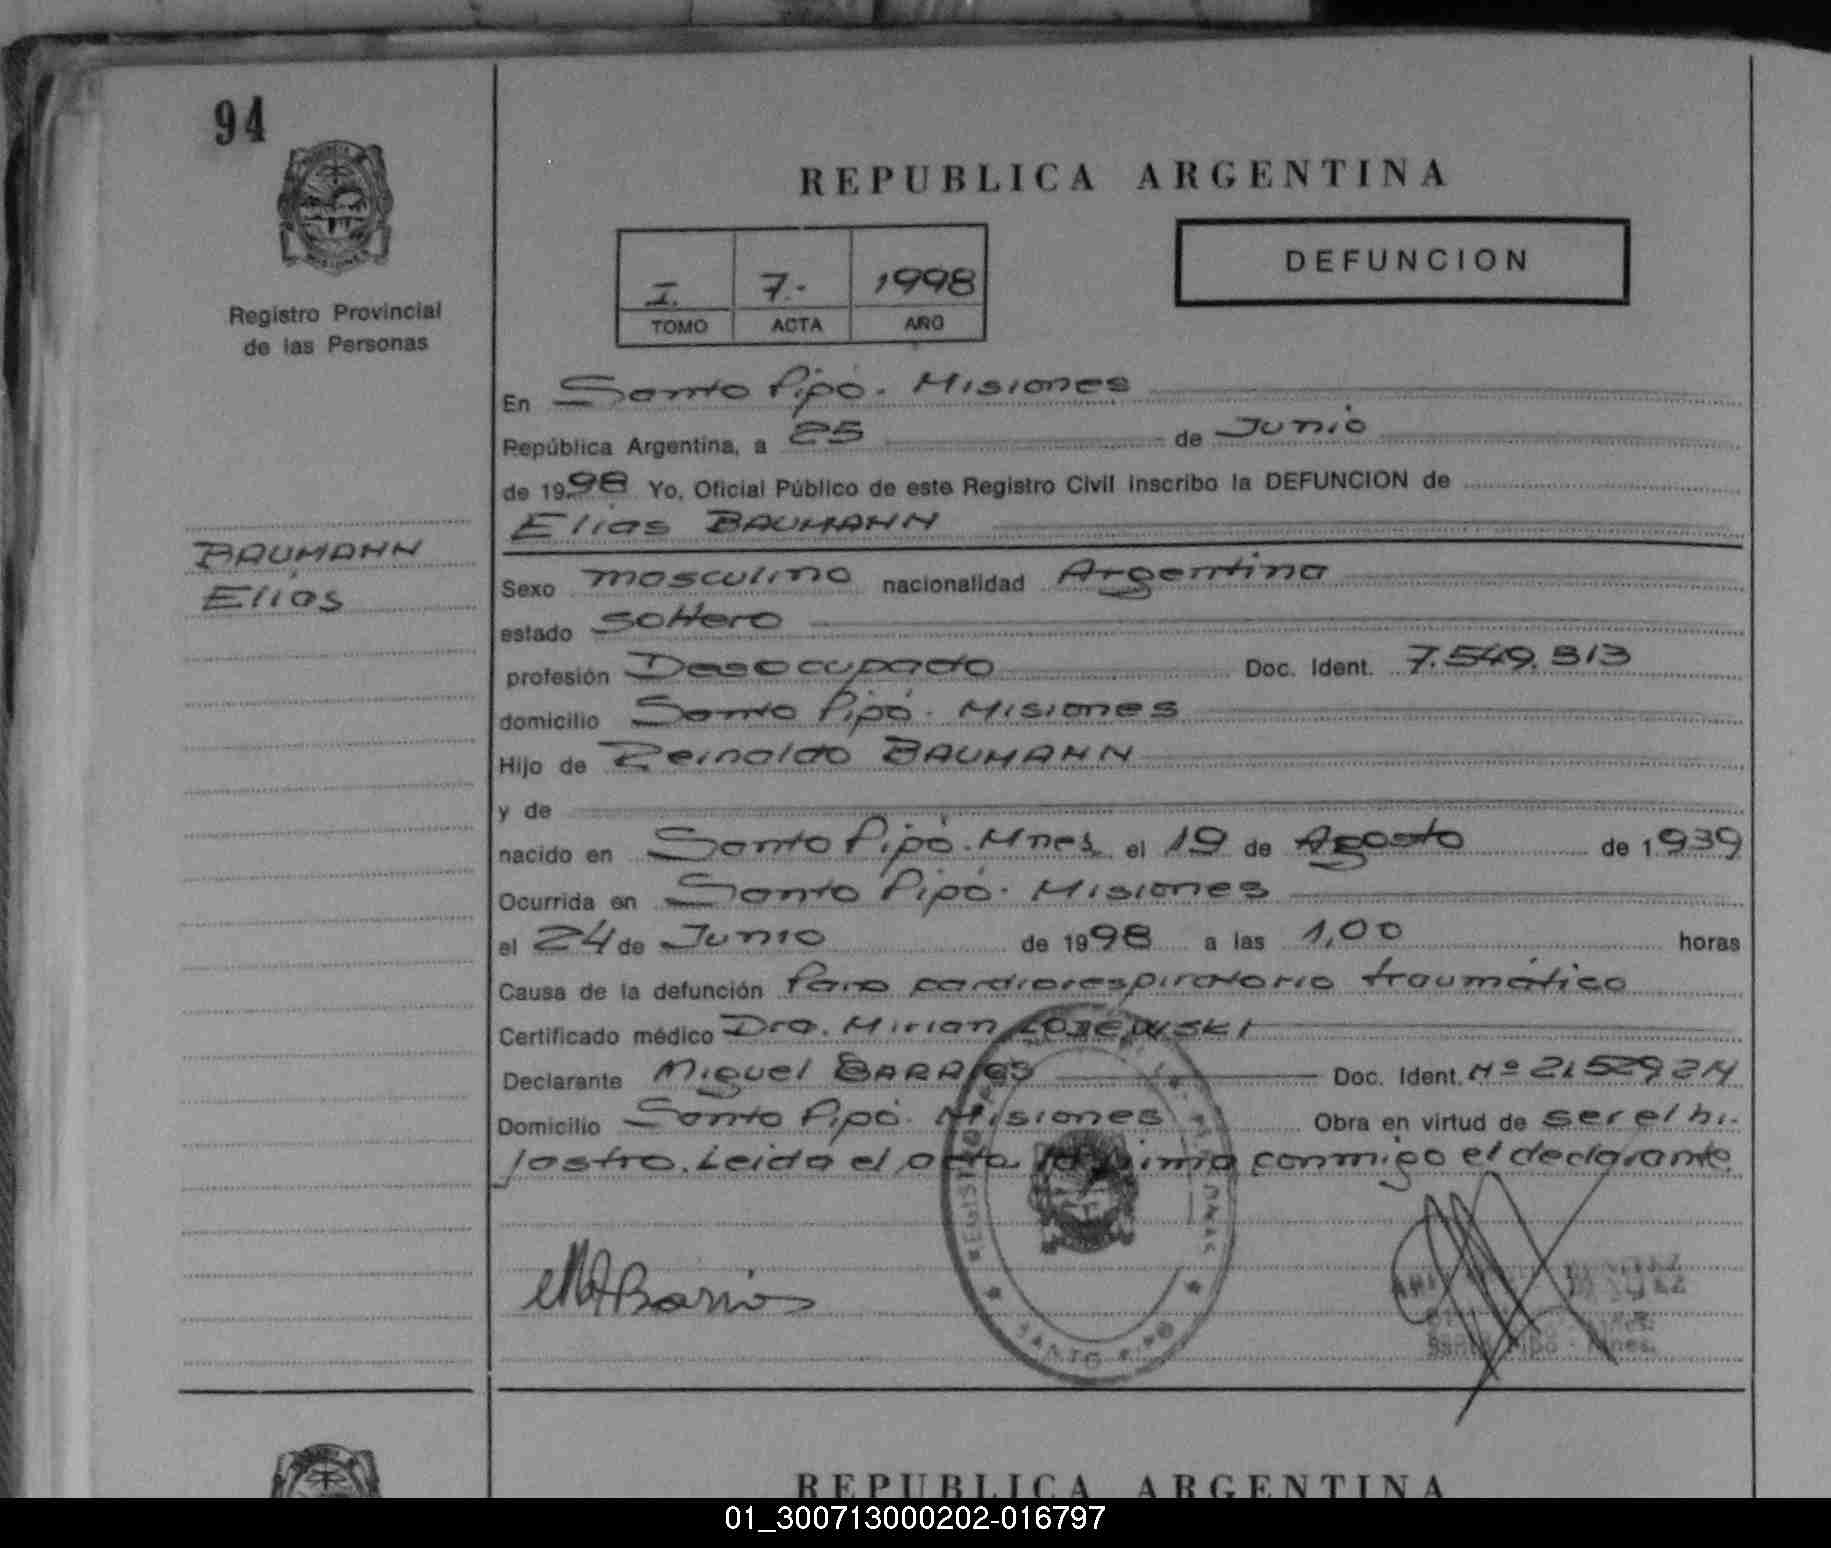 94
REPUBLICA ARGENTINA
I. 7.- 1998
TOMO ACTA AÑO
DEFUNCION
Registro Provincial
de las Personas
En Santo Pipó. Misiones
República Argentina, a 25 de Junio
de 1998 Yo, Oficial Público de este Registro Civil inscribo la DEFUNCION de
Elias BAUMANN
BAUMANN
Elias
Sexo masculino nacionalidad Argentina
estado soltero
profesión Desocupado Doc. Ident. 7.549.313
domicilio Santo Pipó. Misiones
Hijo de Reinaldo BAUMANN
y de
nacido en Santo Pipó. Mnes. el 19 de Agosto de 1939
Ocurrida en Santo Pipó. Misiones
el 24 de Junio de 1998 a las 1,00 horas
Causa de la defunción Paro cardiorespiratorio traumático
Certificado médico Dra. Mirian
Declarante Miguel BARRIOS Doc. Ident. Nº 21.529.214
Domicilio Santo Pipó. Misiones Obra en virtud de ser el hi-
jastro. Leida el acta la firma conmigo el declarante
MABarrios
SANTO PIPÓ
Santo Pipó - Mnes.
REPUBLICA ARGENTINA
01_300713000202-016797